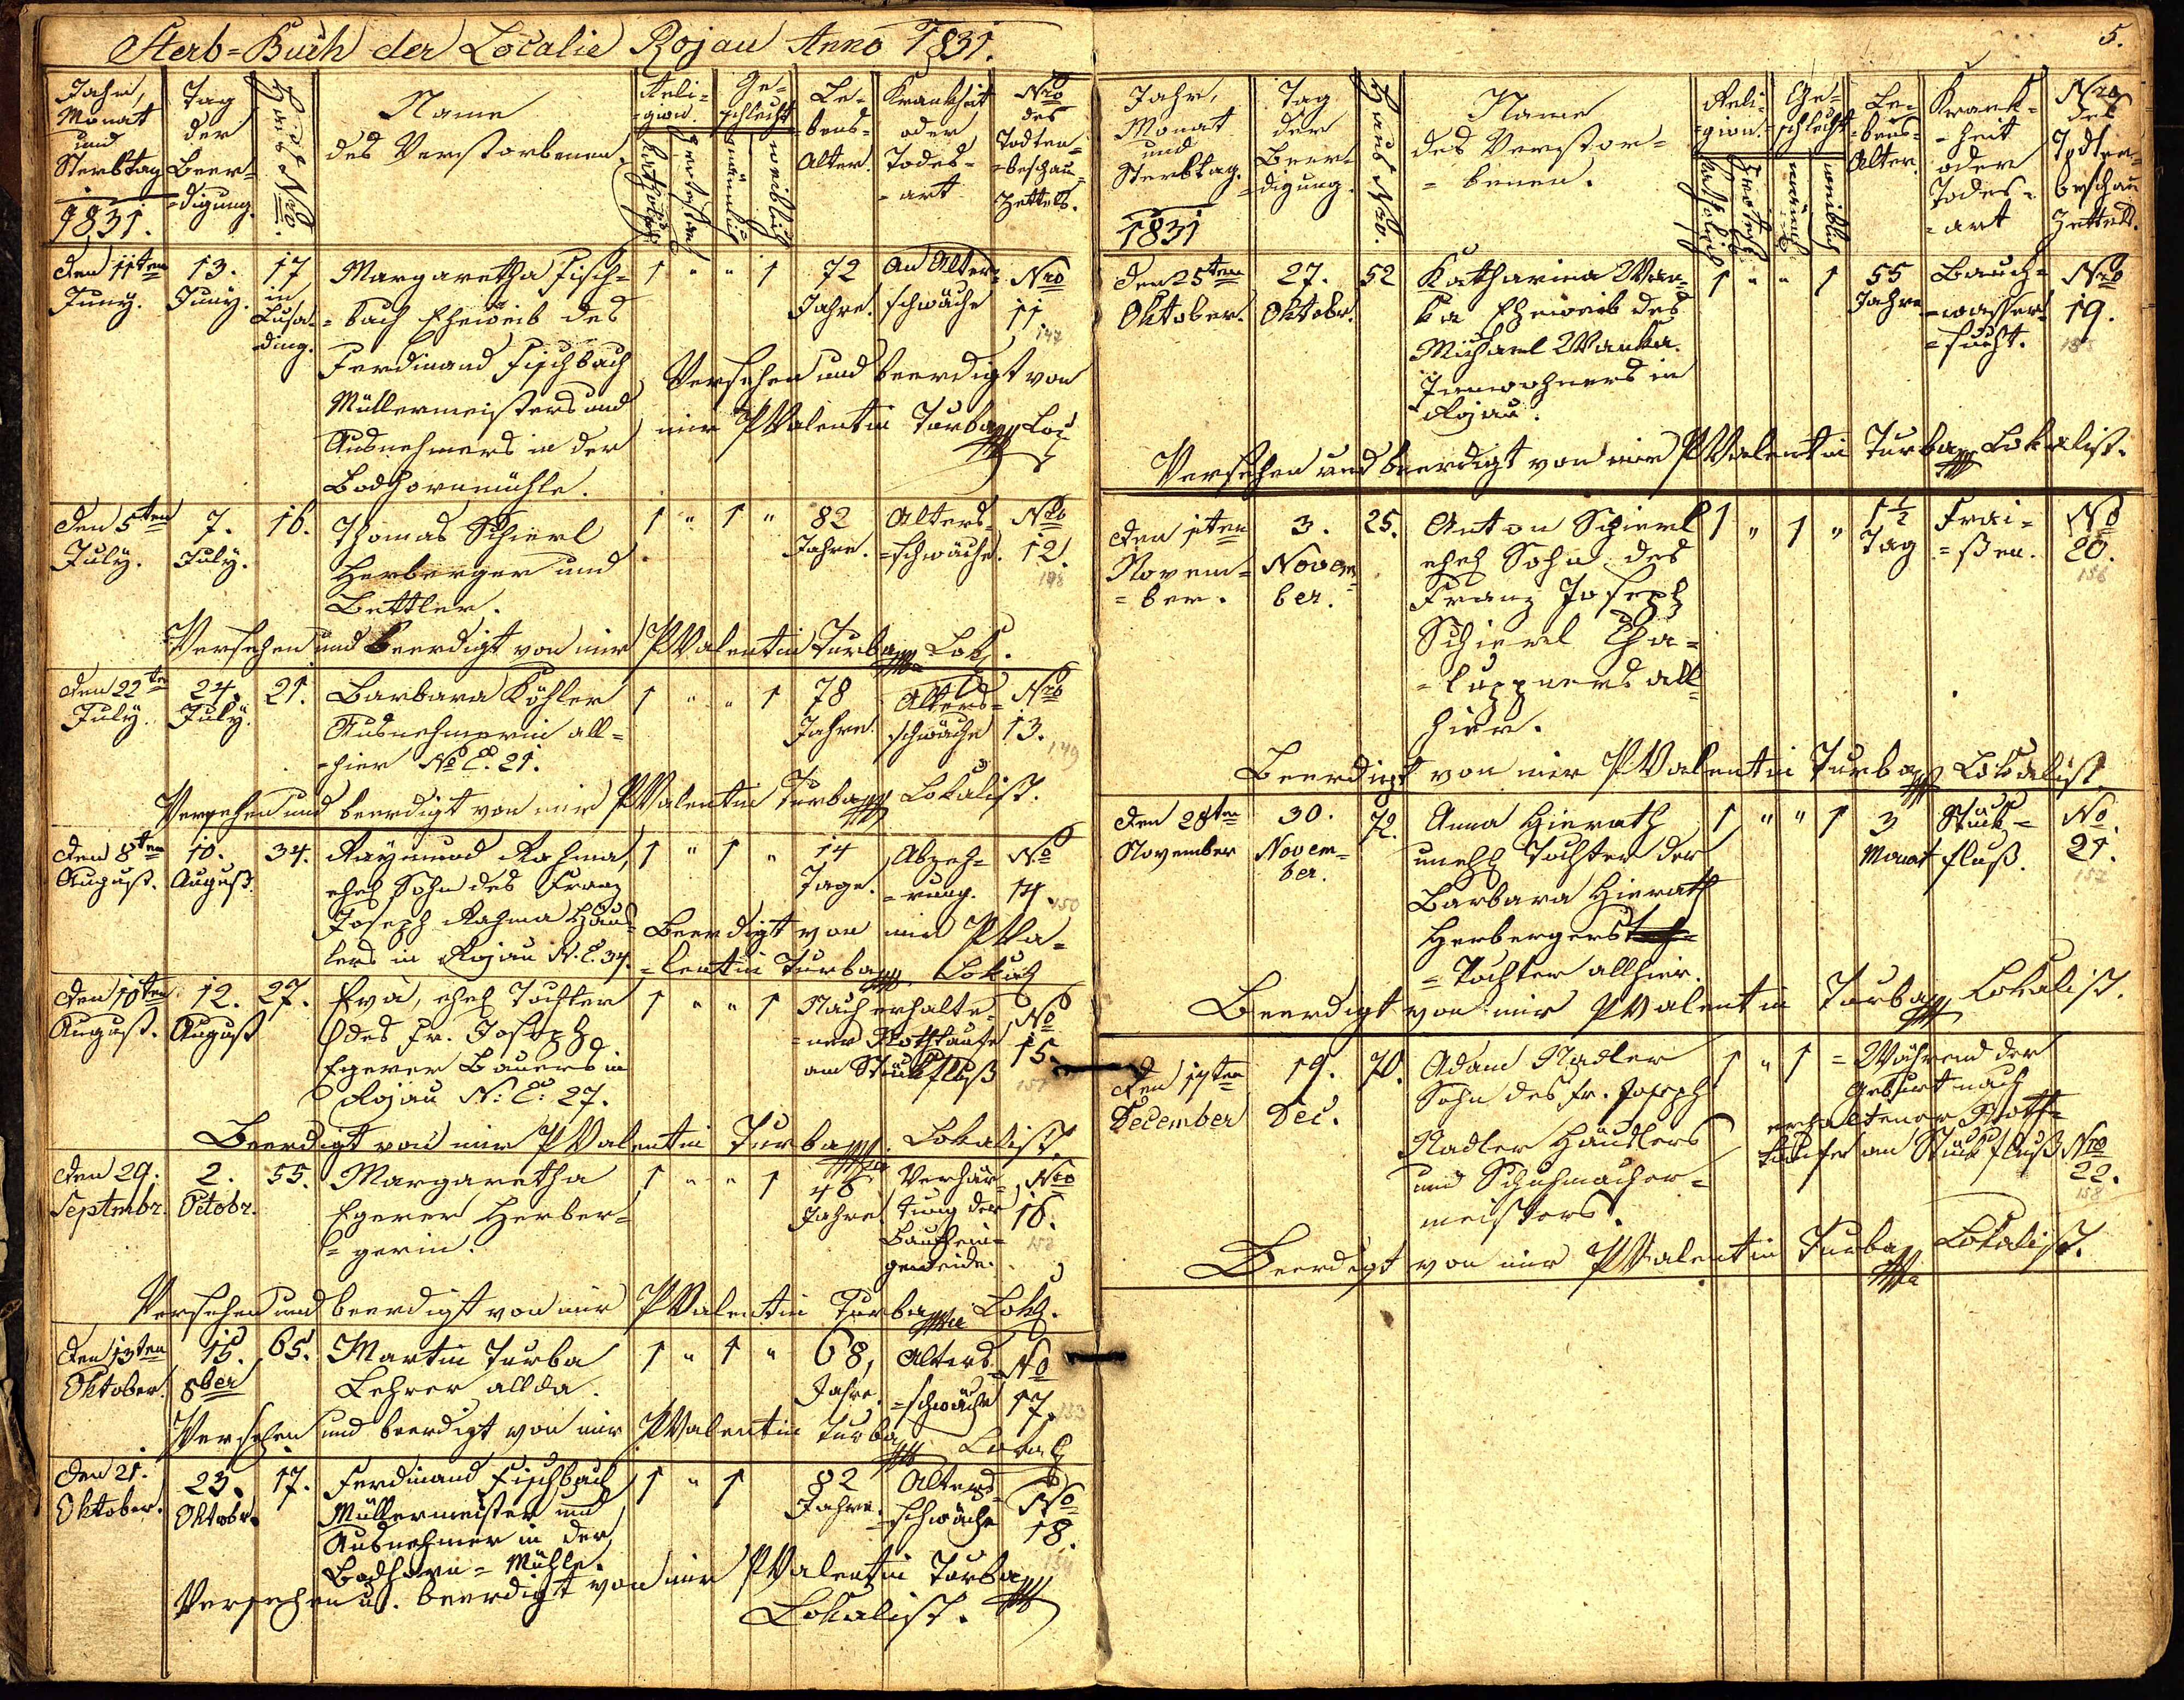 Sterb=Buch der Localie Rojau Anno 1831.
Jahr,
Monat
und
Sterbtag
1831.
Tag
der
Beer=
=digung.
Haus Nro.
Name
des Verstorbenen.
Reli=
=gion.
katholisch
protestan
Ge=
schlecht
männlich
weiblich
Le=
bens=
Alter.
Krankheit
oder
Todes=
=art
Nro
des
Todten=
=beschau=
Zettels.
den 11ten
Juny.
13.
Juny.
17
in
Lusa=
ding.
Margaretha Fisch=
=bach Eheweib des
Ferdinand Fischbach
Müllermeisters und
Ausnehmers in der
Bodhornmühle.
1 " " 1
72
Jahre.
An Alter=
schwäche
Nro
11
147
Versehen und beerdigt von
mir P Valentin Turba Lok
den 5ten
July.
7.
July.
16.
Thomas Schierl
Herberger und
Bettler.
1 " 1 "
82
Jahre.
Alters=
=schwäche.
Nro
12.
148
Versehen und beerdigt von mir P Valentin Turba Lok.
den 22ten
July.
24.
July.
21.
Barbara Köhler
Ausnehmerin all=
=hier No C. 21.
1 " " 1
78
Jahre.
Alters=
schwäche
Nro
13.
149
Versehen und beerdigt von mir P Valentin Turba Lokalist.
den 8ten
August.
10.
August.
34.
Raymund Rahma,
ehel Sohn des Franz
Joseph Rahma Häus=
lers in Rojau N. C. 34.
1 " 1 "
14
Tage.
Abzeh=
=rung.
No
14.
150
Beerdigt von mir P Va=
=lentin Turba Lokal
den 10ten
August.
12.
August
27.
Eva, ehel Tochter
des Fr. Joseph
Egerer Bauers in
Rojau N: C: 27.
1 " " 1
Nach erhalte=
=ner Nothtaufe
am Stückfluß
No
15.
151
Beerdigt von mir P Valentin Turba Lokalist.
den 29.
Septmbr.
2.
Octobr.
55.
Margaretha
Egerer Herber=
=gerin.
1 " " 1
48
Jahre.
Verhär=
tung der
Bauchein=
geweide.
Nro
16.
152
Versehen und beerdigt von mir P Valentin Turba Lok.
den 13ten
Oktober.
15.
8ber
65.
Martin Turba
Lehrer allda.
1 " 1 "
68,
Jahre.
Alters=
=schwäche
No
17.
153
Versehen und beerdigt von mir P Valentin Turba Lokal
den 21.
Oktober.
23.
Oktobr.
17.
Ferdinand Fischbach
Müllermeister und
Ausnehmer in der
Bodhorn=Mühle.
1 " 1
82
Jahre.
Alters=
schwäche
No
18.
154
Versehen u. beerdigt von mir P Valentin Turba
Lokalist.
5.
Jahr,
Monat
und
Sterbtag.
1831
Tag
der
Beer=
=digung.
Haus Nro.
Name
des Verstor=
=benen.
Reli=
=gion.
katholisch
protest.
Ge=
=schlecht
männlich
weiblich
Le=
=bens=
Alter.
Krank=
=heit
oder
Todes=
=art
Nro
des
Todten=
beschau
Zettels.
den 25ten
Oktober.
27.
Oktobr.
52
Katharina Wan=
ka Eheweib des
Michael Wanka
Innwohners in
Rojau.
1 " " 1
55
Jahre
Bauch=
=wasser=
=sucht.
Nro
19.
155
Versehen und beerdigt von mir P Valentin Turba Lokalist.
den 1ten
Novem=
=ber.
3.
Novem=
ber.
25.
Anton Schierl
ehel Sohn des
Franz Joseph
Schierl Cha=
=luppners all=
hier.
1 " 1 "
1½
Tag
Frai=
=ßen.
No
20.
156
Beerdigt von mir P Valentin Turba Lokalist
den 28ten
November
30.
Novem=
ber.
72.
Anna Hierath
unehl Tochter der
Barbara Hierath
Herbergers
=Tochter allhier.
1 " " 1
3
Monat
Stück=
fluß.
No.
21.
157
Beerdigt von mir P Valentin Turba Lokalist.
den 17ten
December
19.
Dec.
70.
Adam Nadler
Sohn des Fr. Joseph
Nadler Häuslers
und Schuhmacher=
meisters.
1 " 1 =
Während der
Geburt nach
erhaltener Noth=
taufe am Stückfluß
Nro
22.
158
Beerdigt von mir P Valentin Turba Lokalist.